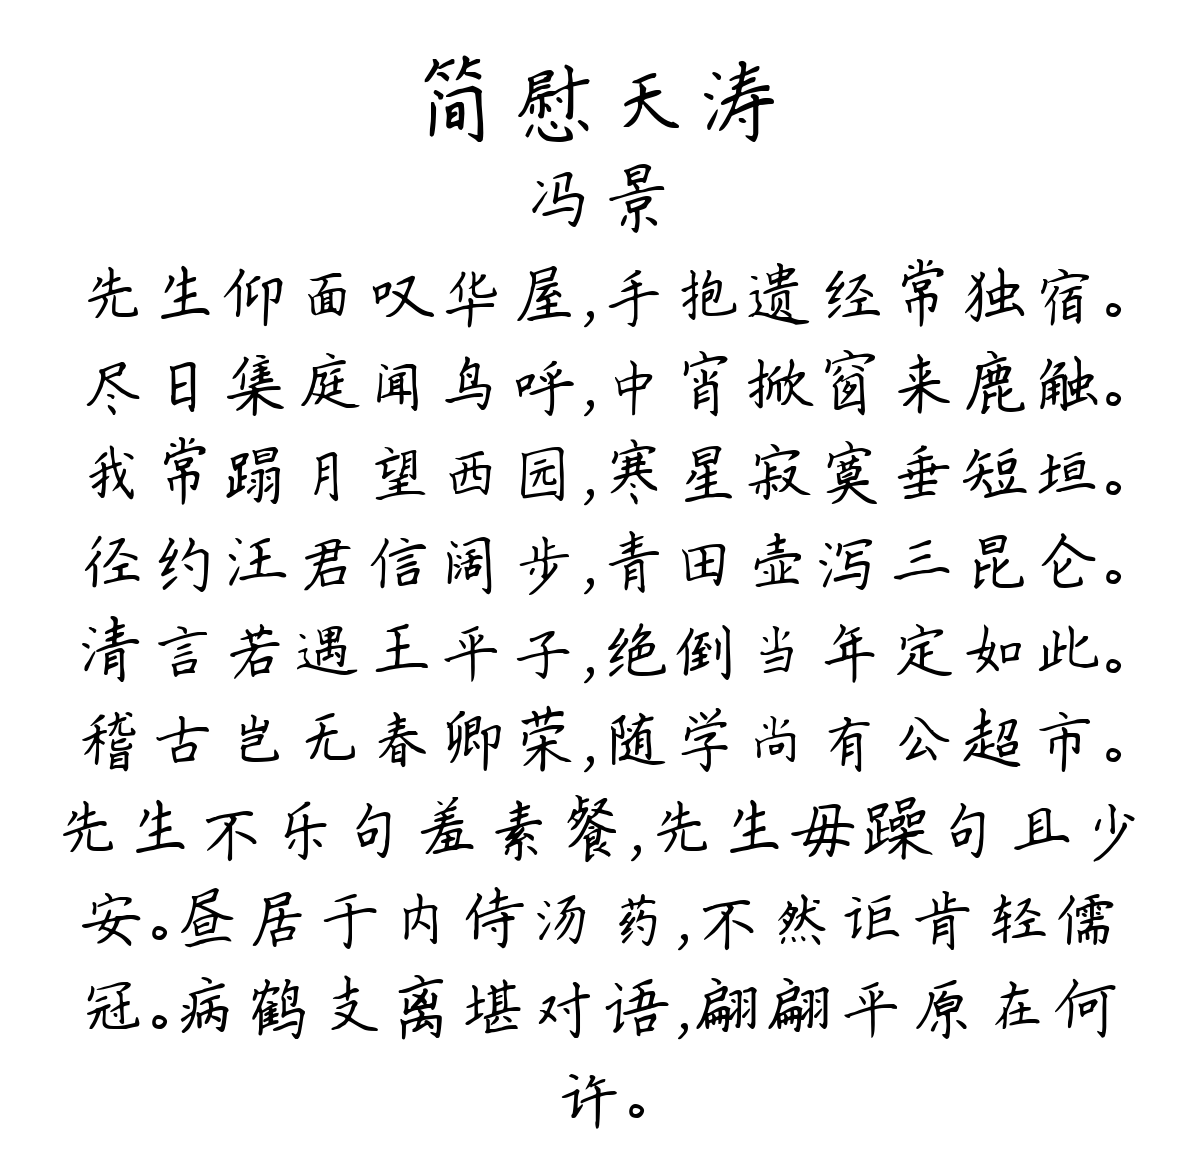 简慰天涛
冯景
先生仰面叹华屋,手抱遗经常独宿。
尽日集庭闻鸟呼,中宵掀窗来鹿触。
我常蹋月望西园,寒星寂寞垂短垣。
径约汪君信阔步,青田壶泻三昆仑。
清言若遇王平子,绝倒当年定如此。
稽古岂无春卿荣,随学尚有公超市。
先生不乐句羞素餐,先生毋躁句且少
安。昼居于内侍汤药,不然讵肯轻儒
冠。病鹤支离堪对语,翩翩平原在何
许。